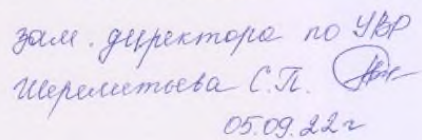 зам. директора по УВР
Шереметьева С.П.
05.09.22г